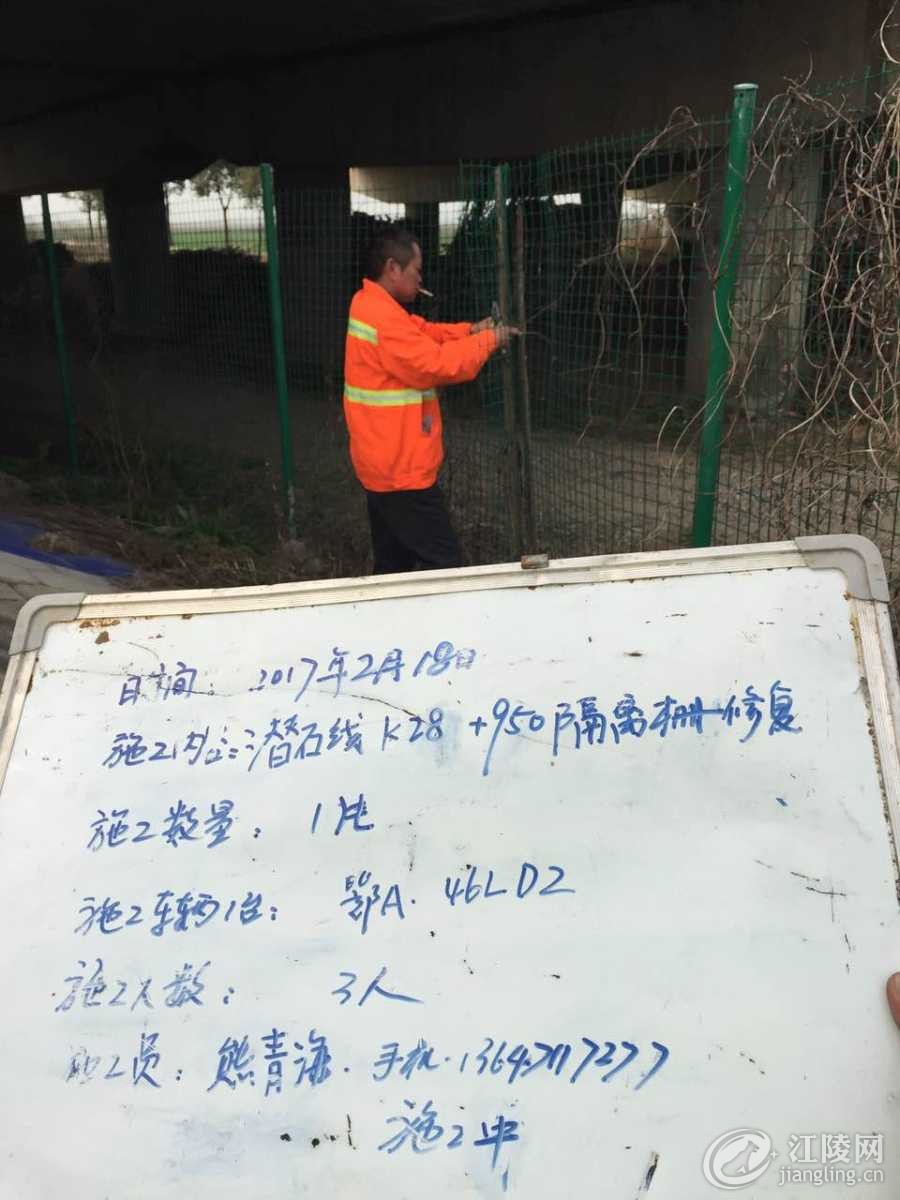 日间: 2017年2月18日
施工内容:潜石线K28+950隔离栅修复
施工数量: 1片
施工车辆1台: 鄂A·46LD2
施工人数: 3人
施工员: 熊青海·手机·13647117277
施工中
江陵网
jiangling.cn